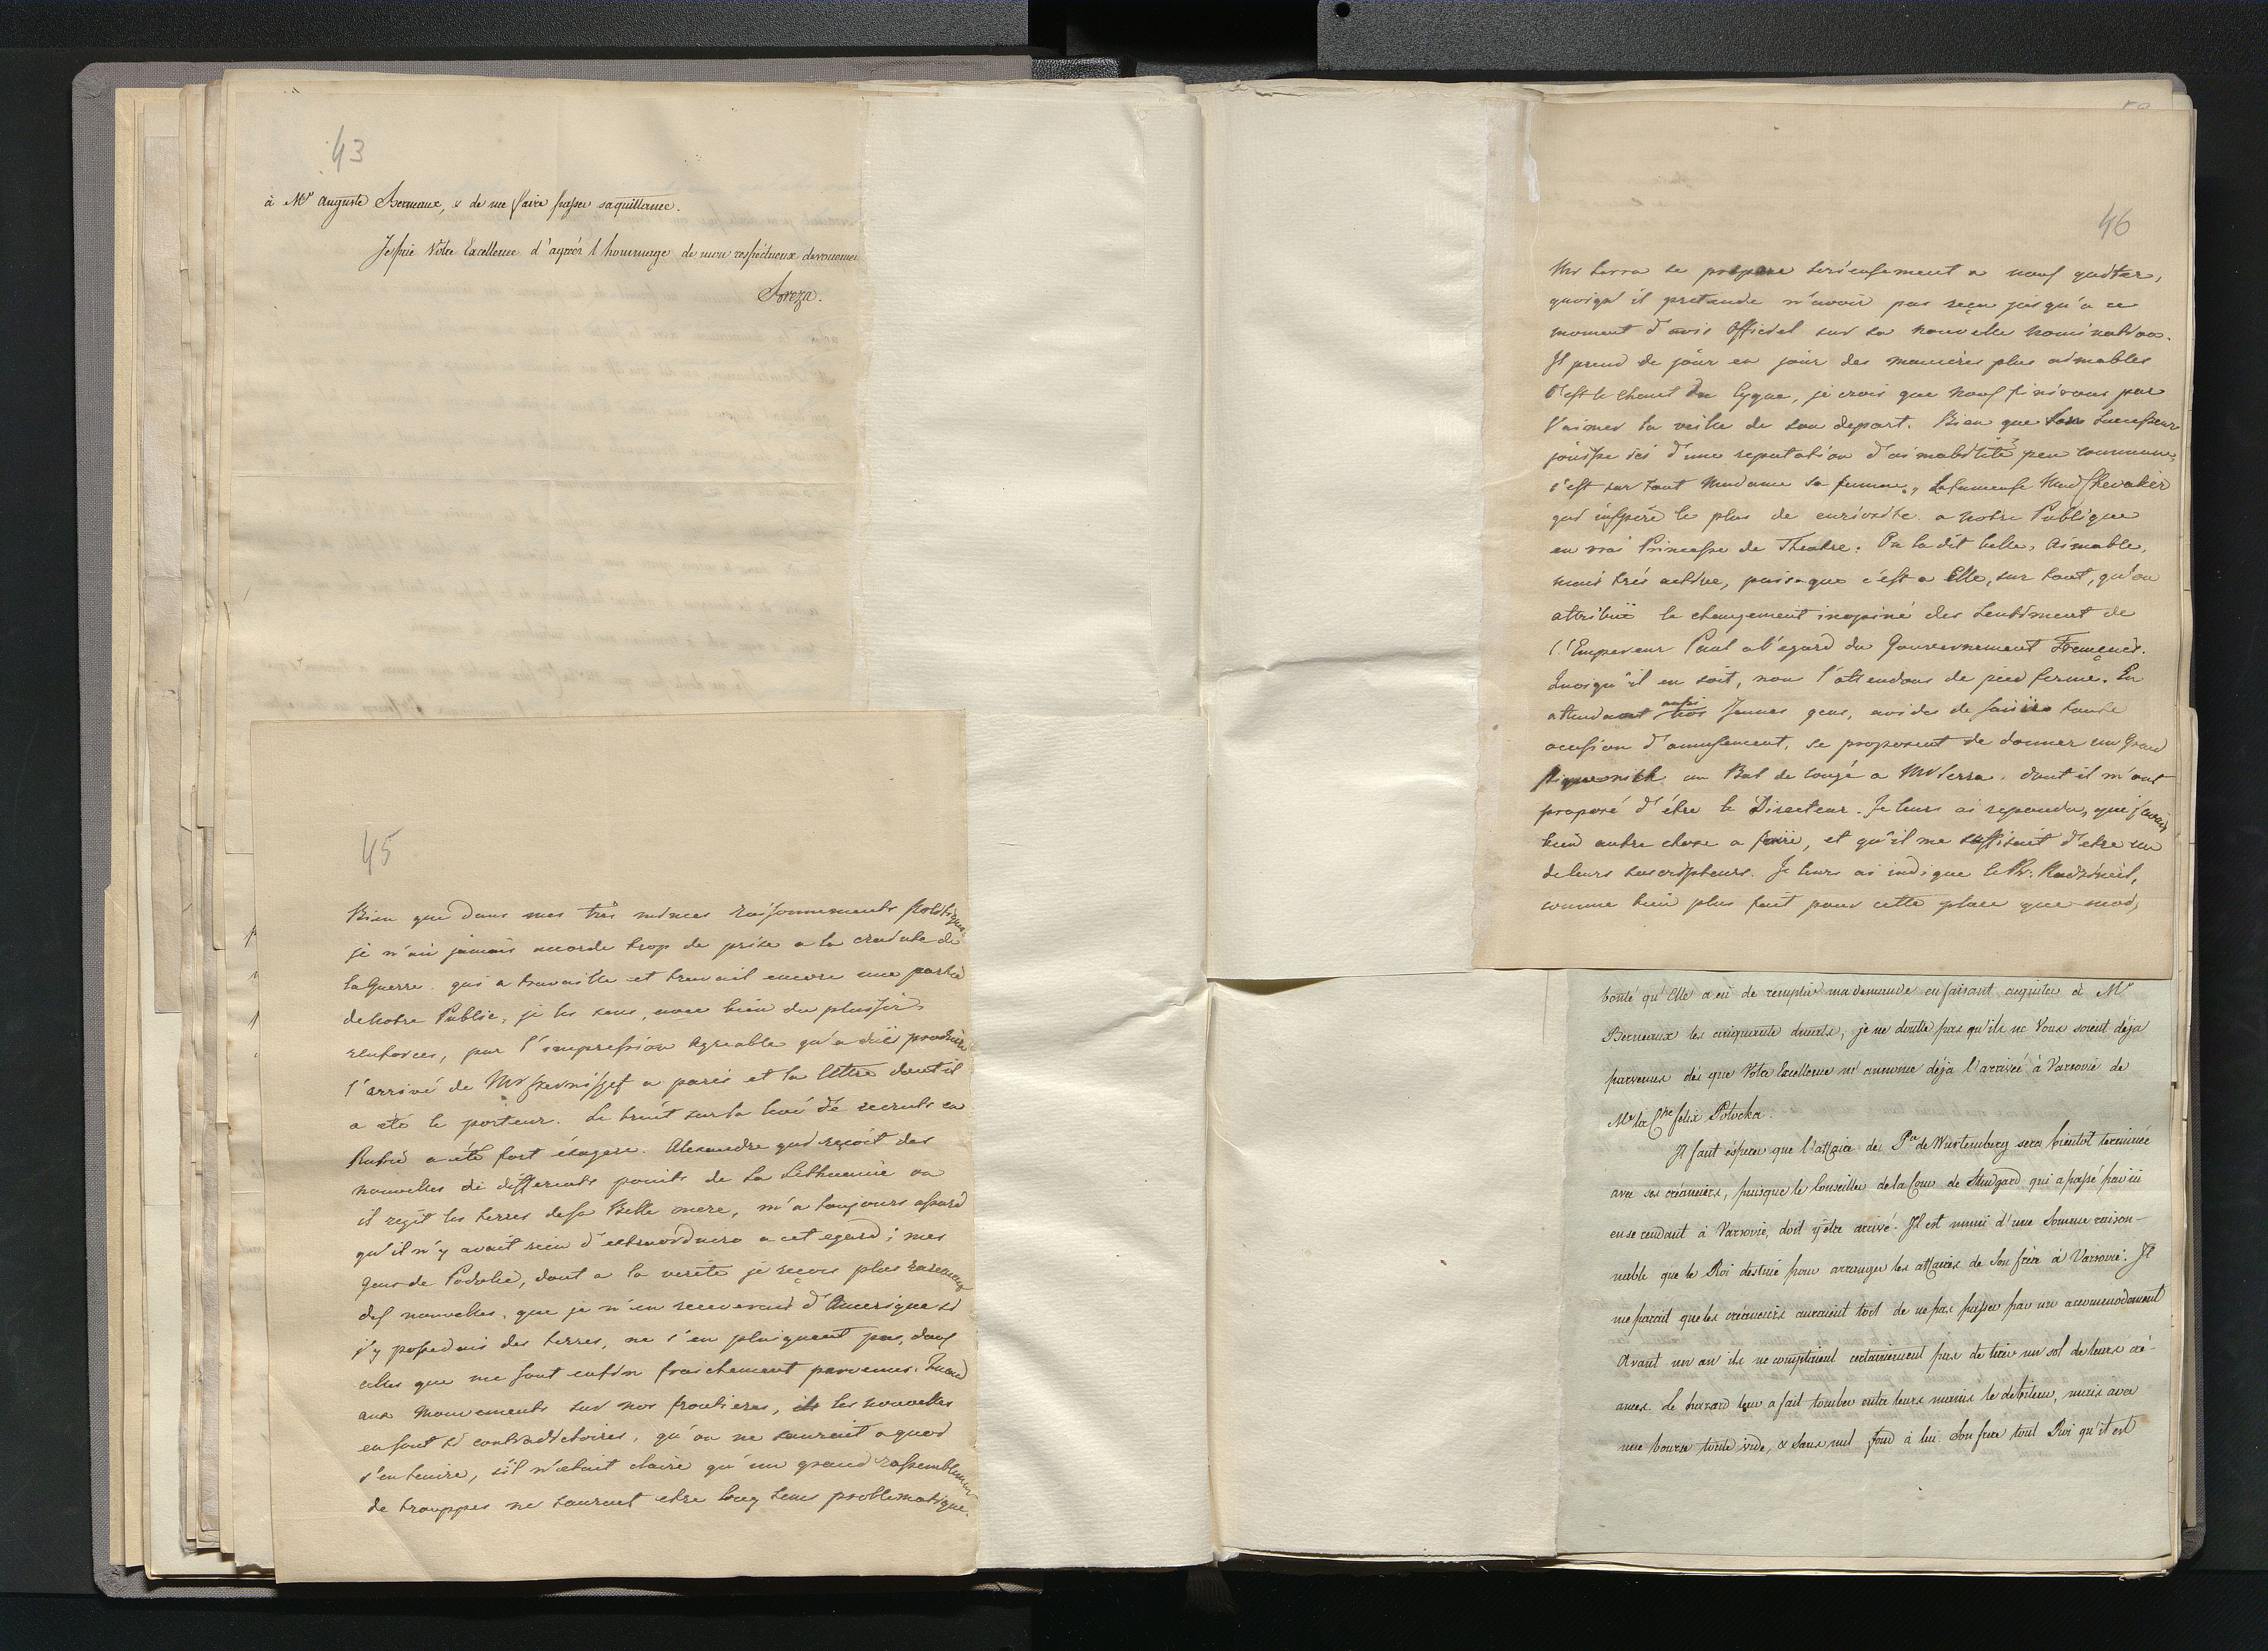 43
à Mr Auguste Bernaux, & de me faire passer sa quittance.
Je prie Votre Excellence d'agréér l'hommage de mon respéctueux devouement
Soreza.
45
Bien que dans mes trés minces raisonnements Politiques
je n'ai jamais accorde trop de prise a la crainte de
la Guerre qui a travaille et travail encore une partie
de Notre Public, je les sens, avec bien du plaisir
renforces, par l'impression Agreable qu'a düe produire
l'arrivé de Mr a paris et la lettre dont il
a été le porteur. Le bruit sur la levé de recruts en
Russie a été fort éxagere. Alexandre qui reçoit des
nouvelles de differents points de la Lithuanie ou
il regit les terres de sa Belle mere, m'a toujours assuré
qu'il n'y avait rien d'extraordinaire a cet egard; mes
gens de Podolie, dont a la verite je reçois plus rarement
des nouvelles, que je n'en recevrais d'Amerique si
j'y possedais des terres, ne s'en plaignent pas, dans
celles que me sont enfin fraichement parvenues. Quand
aux Mouvements sur nos frontieres, les nouvelles
en sont si contradictoires, qu'on ne saurait a quoi
s'en tenire, s'il n'etait claire qu'un grand rassemblement
de trouppes ne saurait etre long tems problematique.
46
Mr Serra se prepare serieusement a nous quitter,
quoiqu'il pretende n'avoir pas reçu jusqu'a ce
moment d'avis Officiel sur sa nouvelle nomination.
Il prend de jour en jour des manieres plus aimables
C'est le Chant du Cygne, je crois que nous finirons par
l'aimer la veille de son depart. Bien que son Successeur
jouisse ici d'une reputation d'aimabilité peu commune,
c'est sur tout Madame sa femme, La fameuse Mad Chevalier
qui inspire le plus de curiosite a notre Publique
en vrai Princesse de Theatre. On la dit belle, Aimable,
mais trés active, puisque c'est a Elle, sur tout, qu'on
attribüe le changement inopiné des Sentiment de
l'Empereur Paul a l'egard du Gouvernement Français.
Quoiqu'il en soit, nous l'attendons de pied ferme. En
attendant nos Jeunes gens, avides de saisir toute
ocasion d'amusement, se proposent de donner un Grand
Piquenick un Bal de congé a Mr Serra, dont il m'ont
proposé d'étre le Directeur. Je leurs ai repondu, que j'avais
bien autre chose a faire, et qu'il me suffisait d'etre un
de leurs souscripteurs. Je leurs ai indique le Pr: Radziwil,
comme bien plus fait pour cette place que moi,
bonté qu'Elle a eü de remplir ma demande en faisant acquiter à Mr
Bernaux les cinquante ducats, je ne doute pas qu'ils ne Vous soient déja
parvenus dés que Votre Excellence m'annonce déja l'arrivée à Varsovie de
Me la Csse felix Potocka.
Il faut éspérer que l'affaire de Pce de Würtemberg sera bientot terminée
avec ses créanciers, puisque le Conseiller de la Cour de Studgard qui a passé par ici
en se rendant à Varsovie, doit y être arrivé. Il est muni d'une Somme raison-
nable que le Roi destine pour arranger les affaires de Son frère à Varsovie. Il
me parait que les créanciers auraient tort de ne pas passer par un accommodement
Avant un an ils ne comptaient certainement pas de tirer un sol de leurs cré-
ances. Le hazard leur a fait tomber entre leurs mains le debiteur, mais avec
une bourse toute vide, & sans nul fond à lui. Son frere tout Roi qu'il est